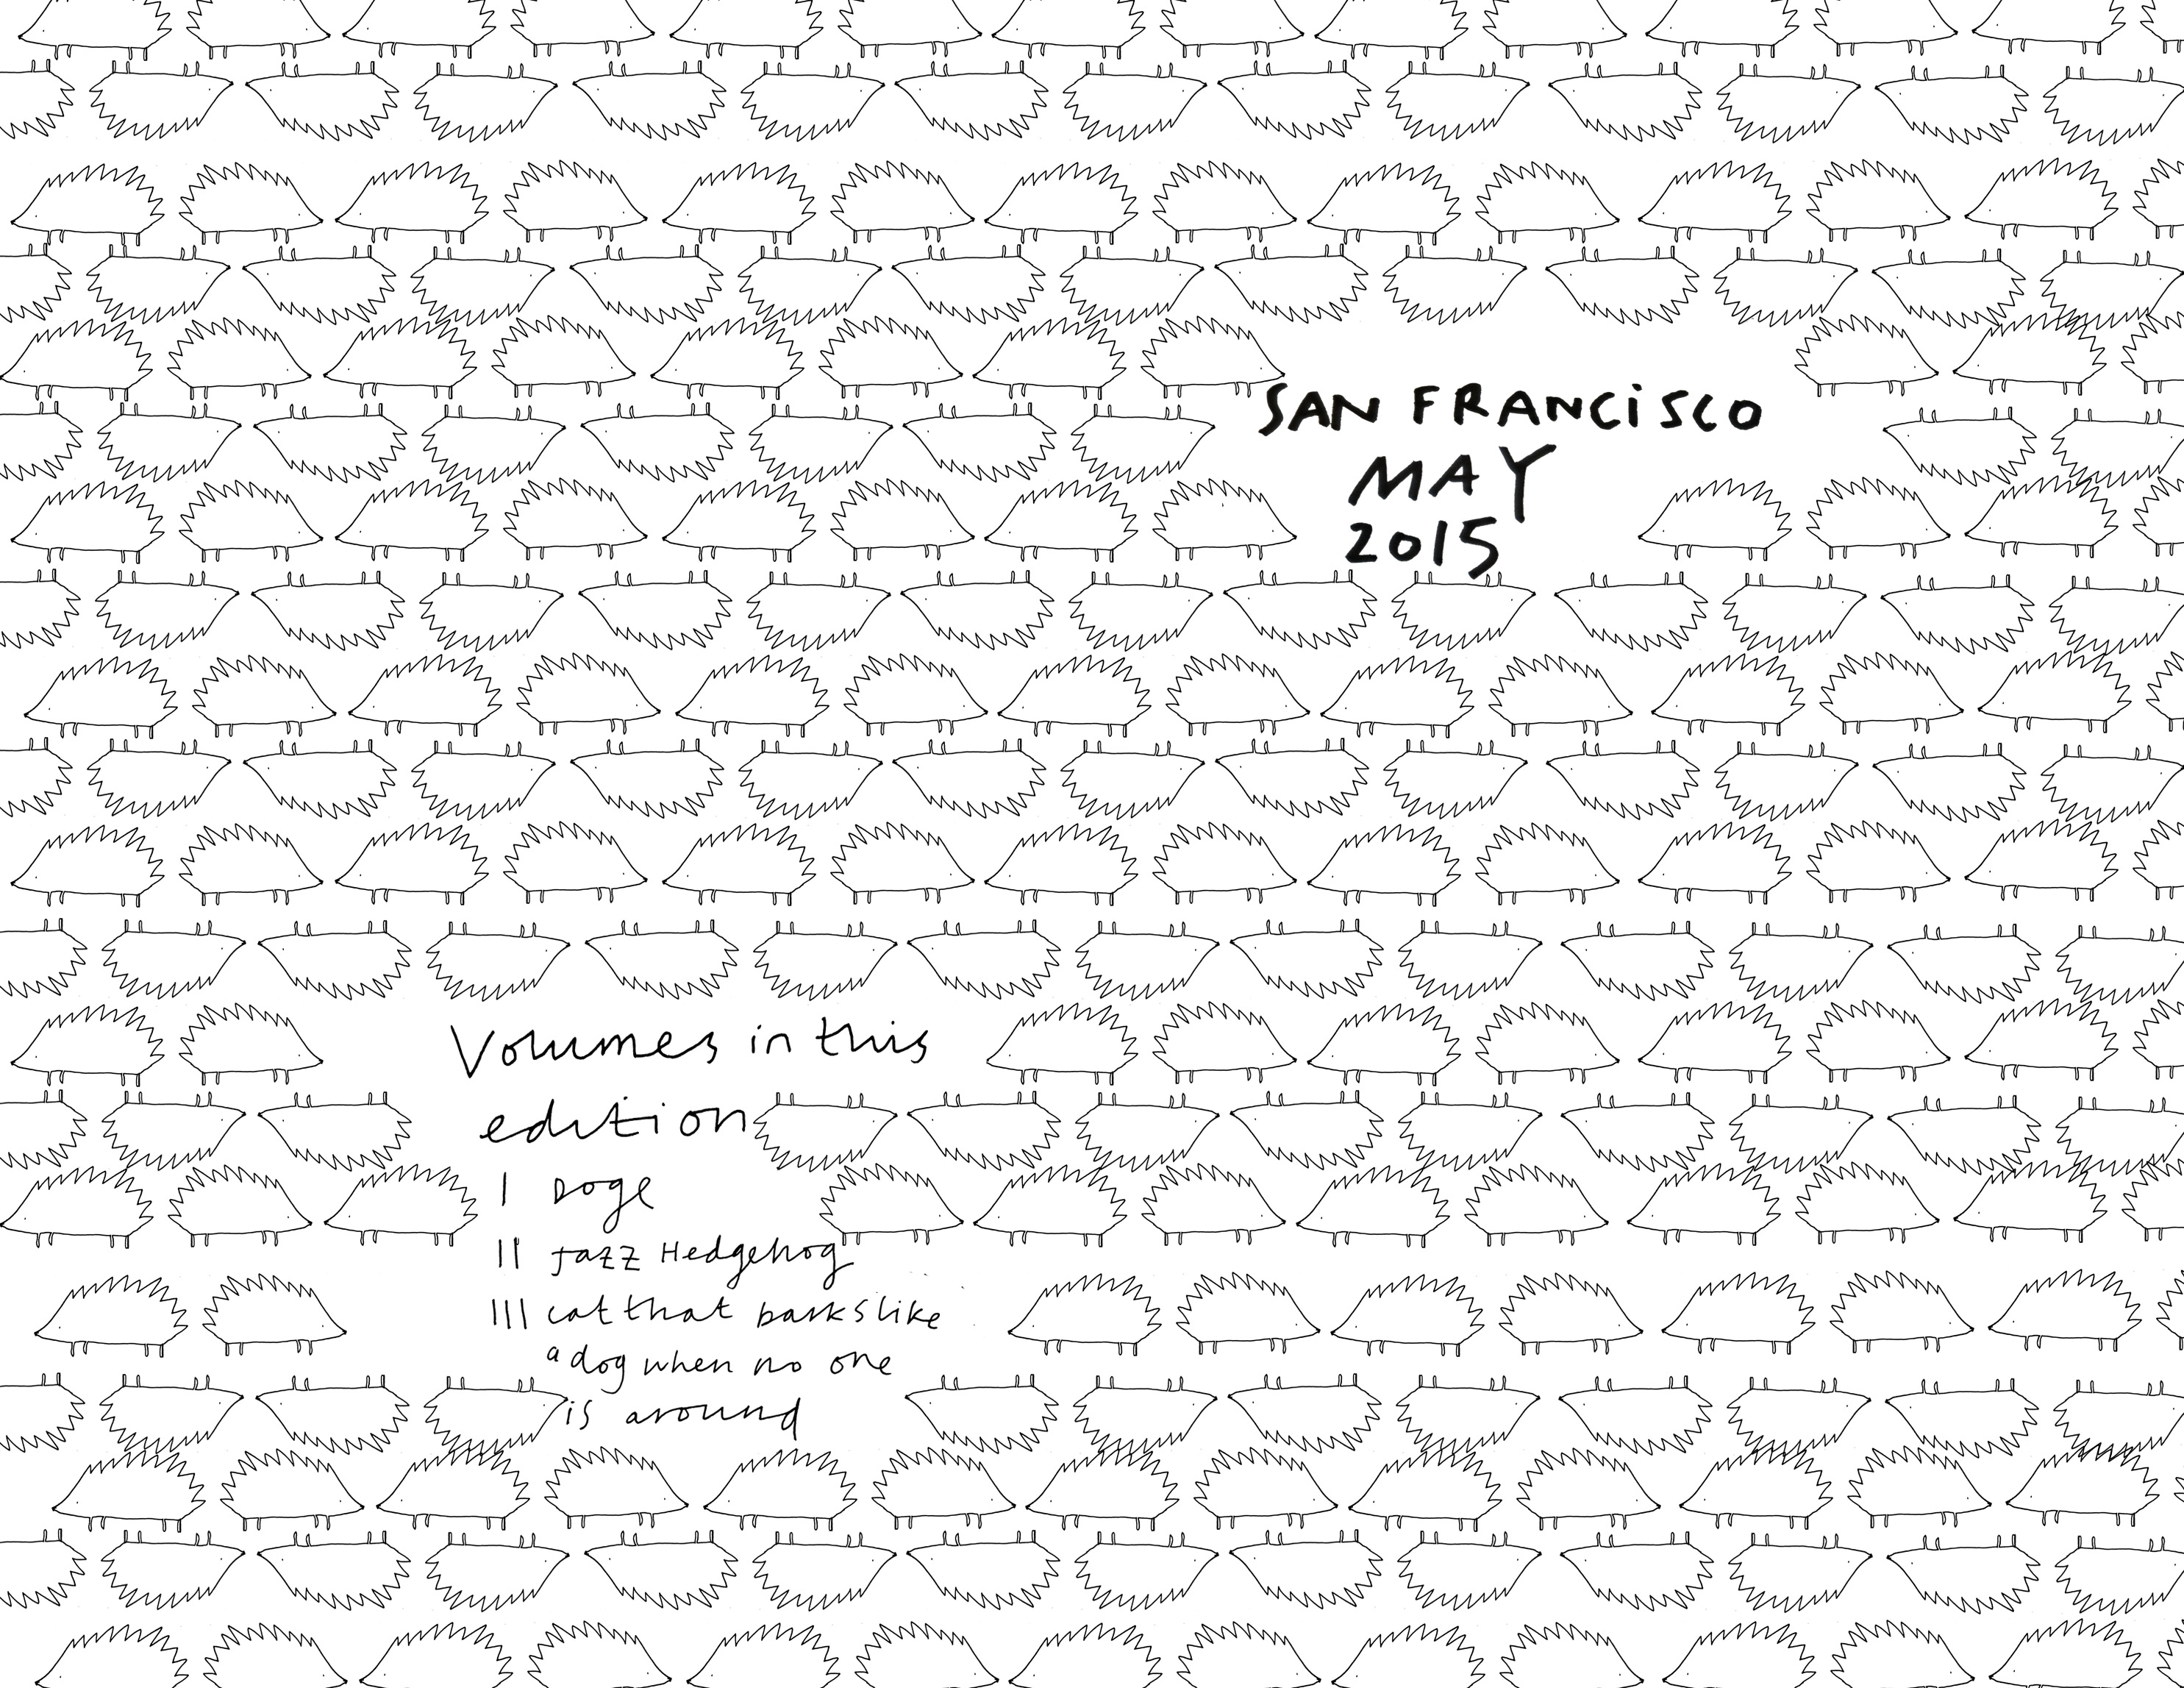 SAN FRANCiSCO
MAY
2015
Volumes in this
edition
I Doge
II Jazz Hedgehog
III cat that barks like
a dog when no one
is around